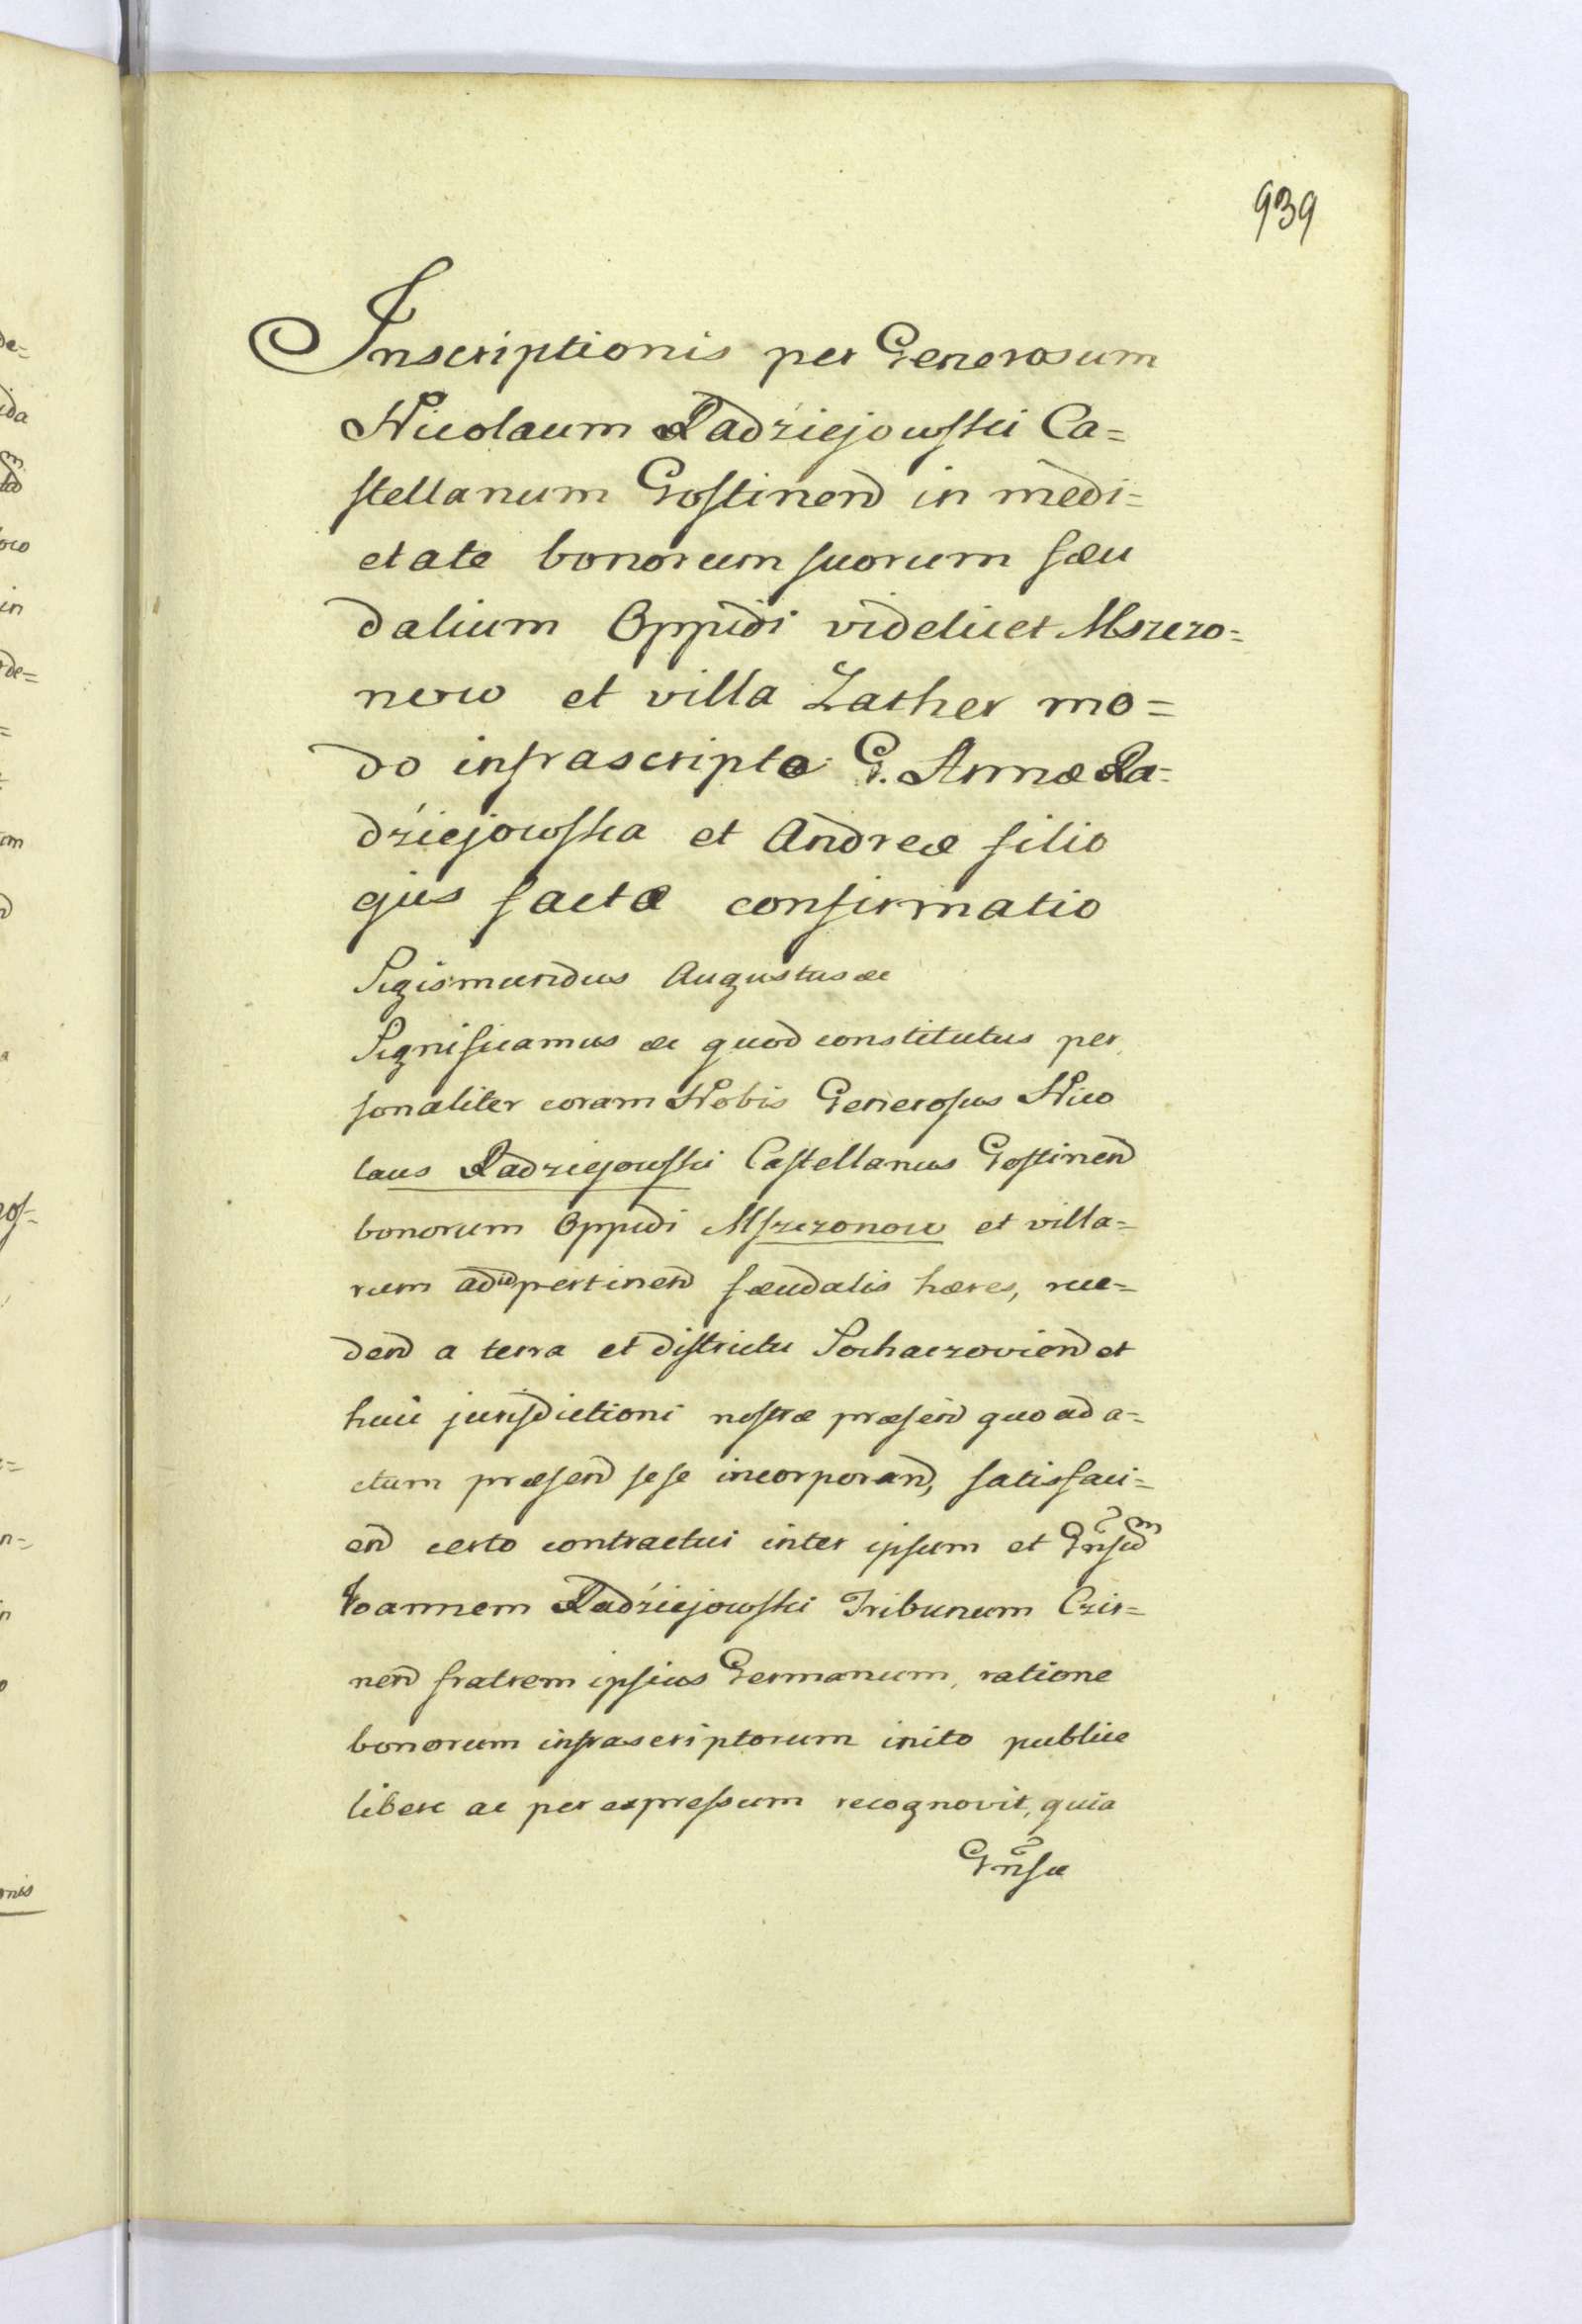 939
Inscriptionis per Generosum
Nicolaum Radziejowski Ca=
stellanum Gostinen in medi=
etate bonorum suorum fæu
dalium Oppidi videlicet Mszczo=
now et villa Zather mo=
do infrascripto G. Annæ Ra=
dziejowska et Andreæ filio
ejus factæ confirmatio
Sigismundus Augustus &c
Significamus &c quod constitutus per
sonaliter coram Nobis Generosus Nico
laus Radziejowski Castellanus Gostinen
bonorum Oppidi Mszczonow et villa=
rum ad id pertinen fæudalis hæres, rece=
den a terra et districtu Sochaczovien et
huic jurisdictioni nostræ præsen quo ad a=
ctum præsen sese incorporan, satisfaci=
en certo contractui inter ipsum et Gnsum
Joannem Radziejowski Tribunum Czir=
nen fratrem ipsius Germanum, ratione
bonorum infrascriptorum inito publice
libere ac per expressum recognovit, quia
Gnsæ
de=
ida
oco
in
de=
om
onis